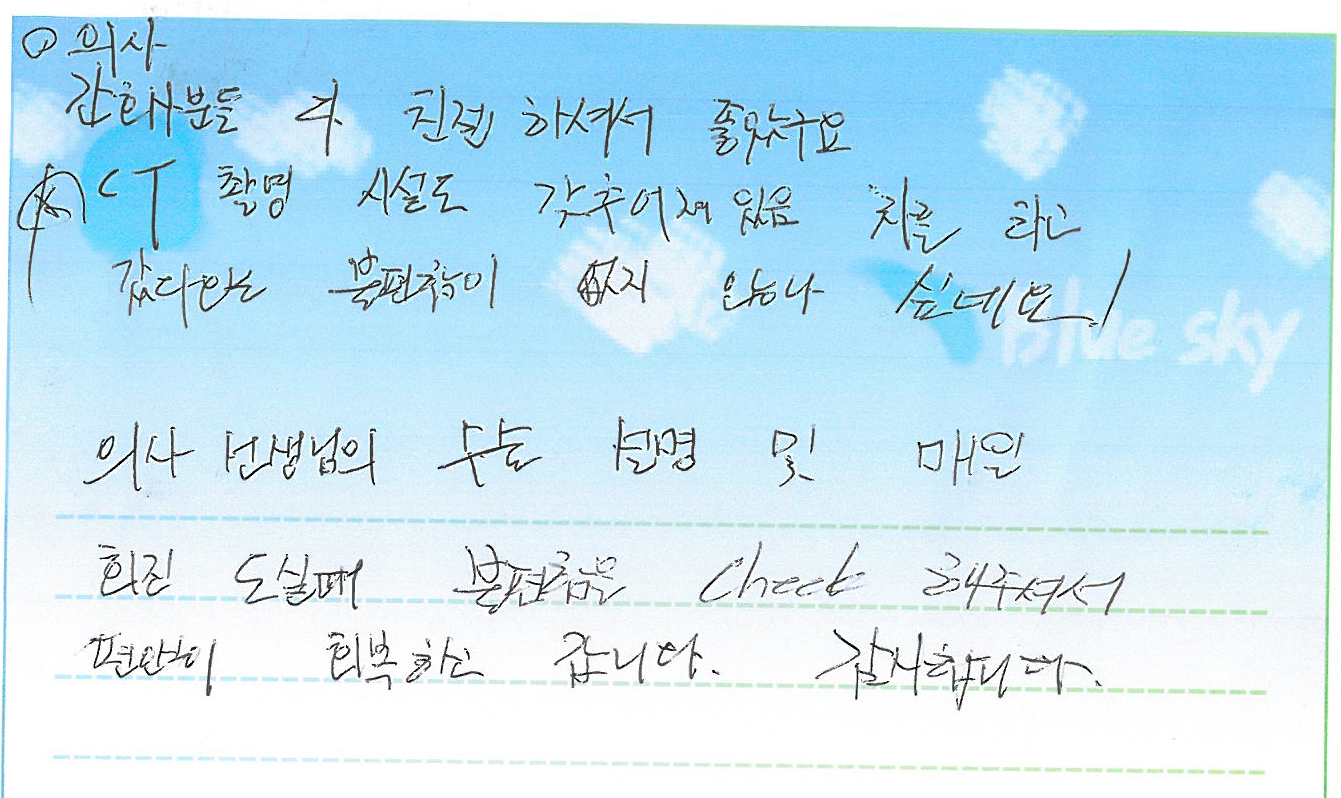 의사
간호사분들 다 친절하셔서 좋았구요
CT 촬명 시설도 갖추어져 있음 차를 타고
갔다오는 불편함이 없지 않나 싶네요!
Blue sky
의사 선생님의 수술 설명 및 매일
회진 도실때 불편함을 Check 해주셔서
편안히 회복하고 갑니다. 감사합니다.